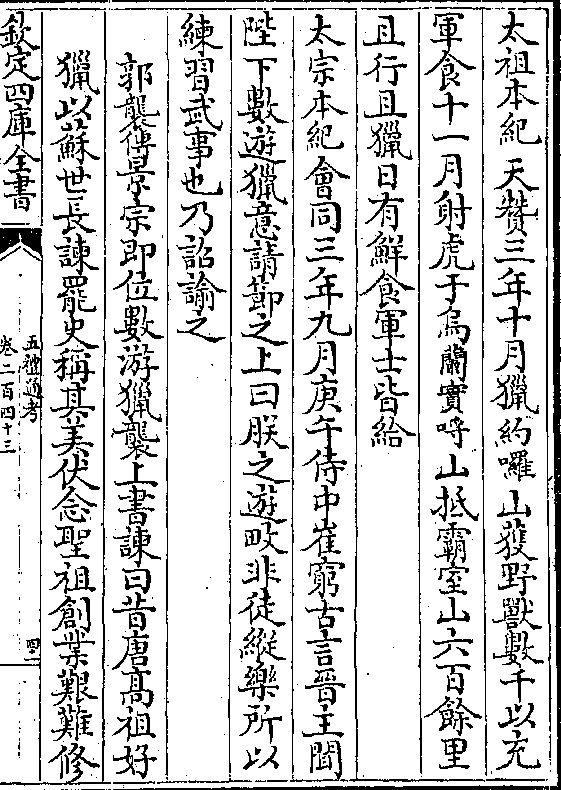 太祖本紀天贊三年十月獵約囉山獲野獸數千以充
軍食十一月射虎于烏蘭實呼山抵霸室山六百餘里
且行且獵日有鮮食軍士皆給
太宗本紀會同三年九月庚午侍中崔窮古言晉主聞
陛下數遊獵意請節之上曰朕之遊畋非徒縱樂所以
練習武事也乃詔諭之
郭襲傳景宗即位數游獵襲上書諫曰昔唐高祖好
獵以蘇世長諫罷史稱其美伏念聖祖創業艱難修
欽定四庫全書
五禮通考
卷二百四十三
四二